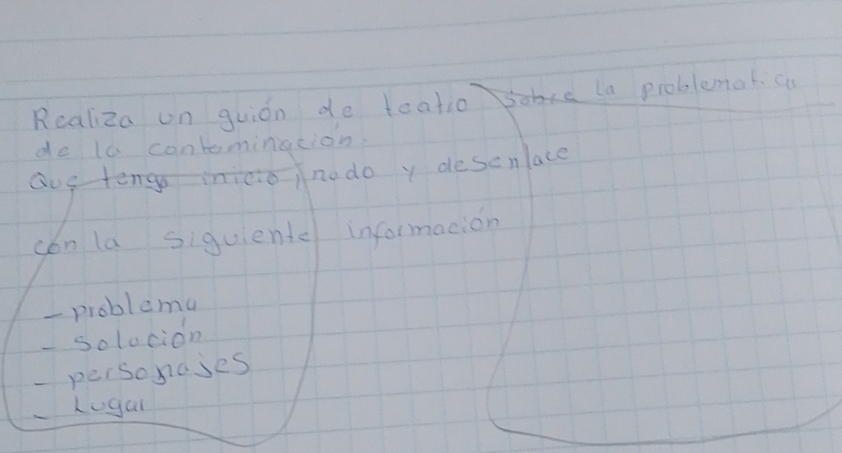 Realiza un guión de teatro sobre la problematica
de la contaminación.
Que tenga inicio, nodo y desenlace
con la siguiente información
- problema
- solución
- personajes
- Lugar